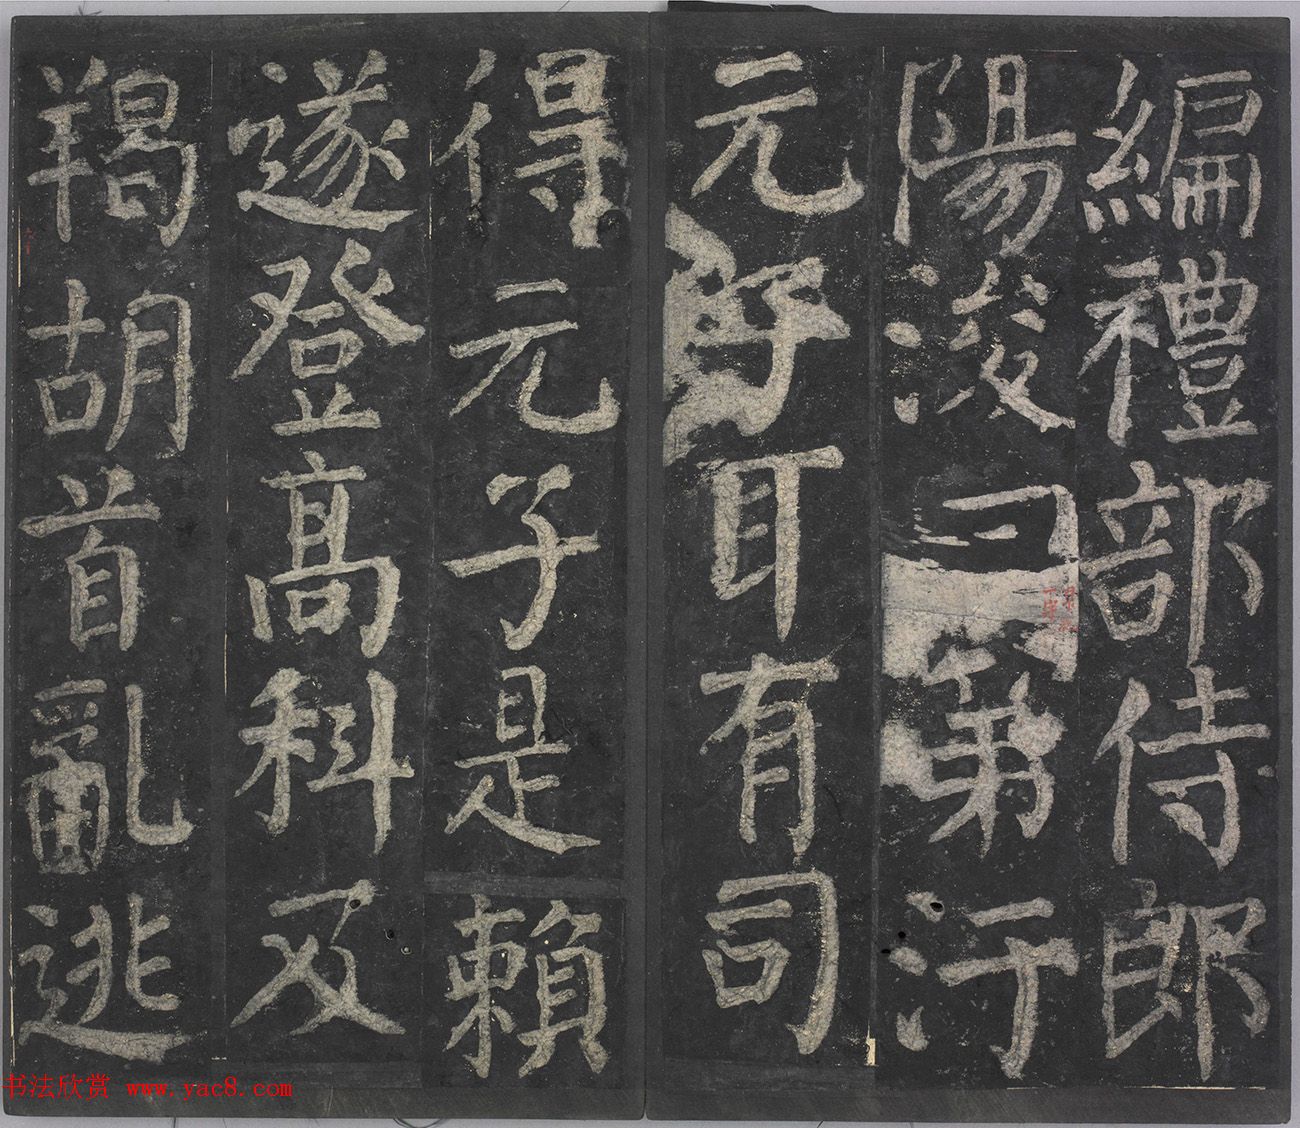 編禮部侍郎
陽浚曰第汙
元子耳有司
得元子是賴
遂登高科及
羯胡首亂逃
书法欣赏 www.yac8.com